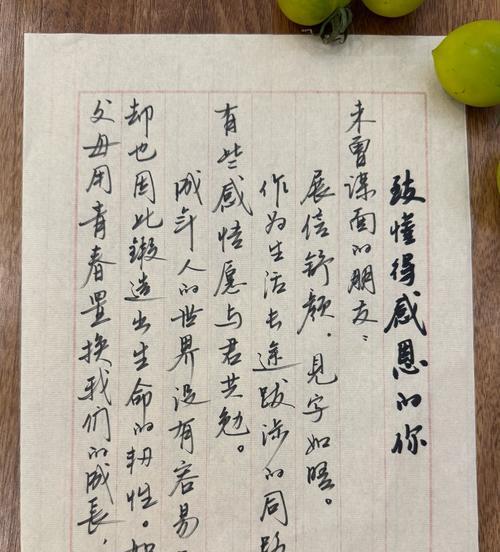 致懂得感恩的你
未曾谋面的朋友：
展信舒颜，见字如晤。
作为生活长途跋涉的同路
有些感悟愿与君共勉。
成年人的世界没有容易
却也因此锻造出生命的韧性。如
父母用青春置换我们的成长，